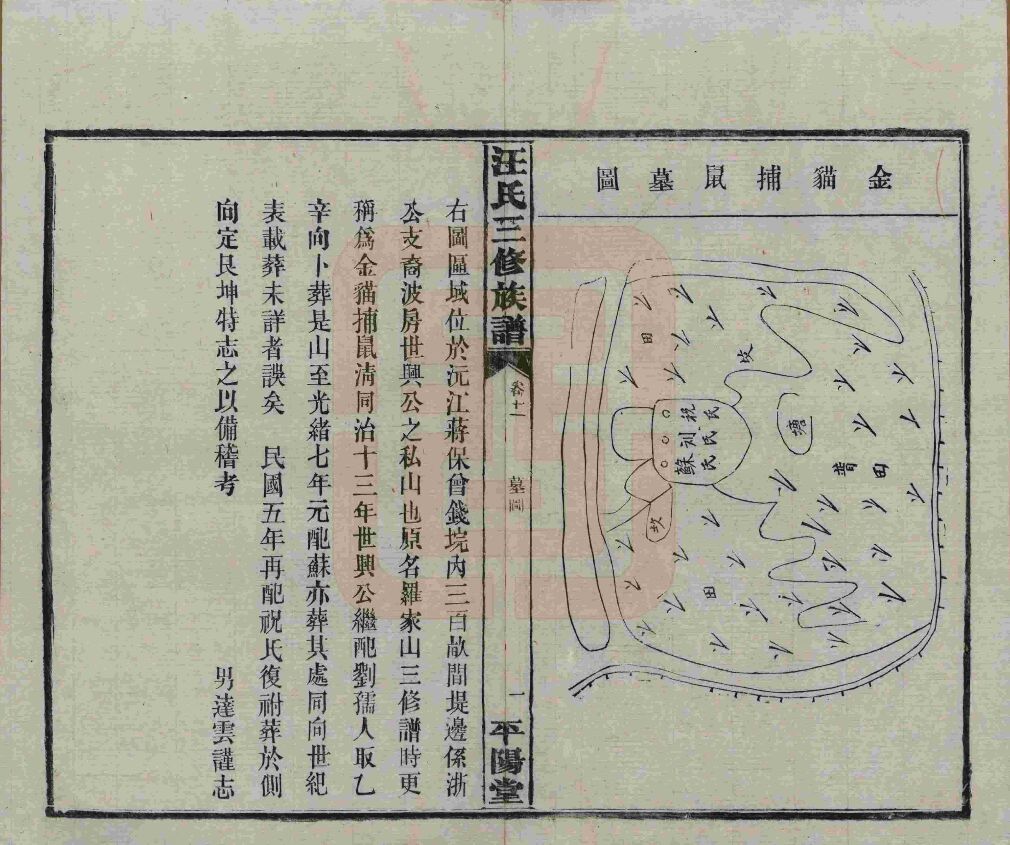 金貓捕鼠墓圖
田
坟
塘
祝氏
刘氏
蘇氏
曹田
坟
田
汪氏三修族譜
卷十一
墓圖
一
平陽堂
右圖區域位於沅江蔣保曾錢垸內三百畝間堤邊係浙
公支裔波房世興公之私山也原名羅家山三修譜時更
稱爲金貓捕鼠淸同治十三年世興公繼配劉孺人取乙
辛向卜葬是山至光緒七年元配蘇亦葬其處同向世紀
表載葬未詳者誤矣　民國五年再配祝氏復祔葬於側
向定艮坤特志之以備稽考
男達雲謹志